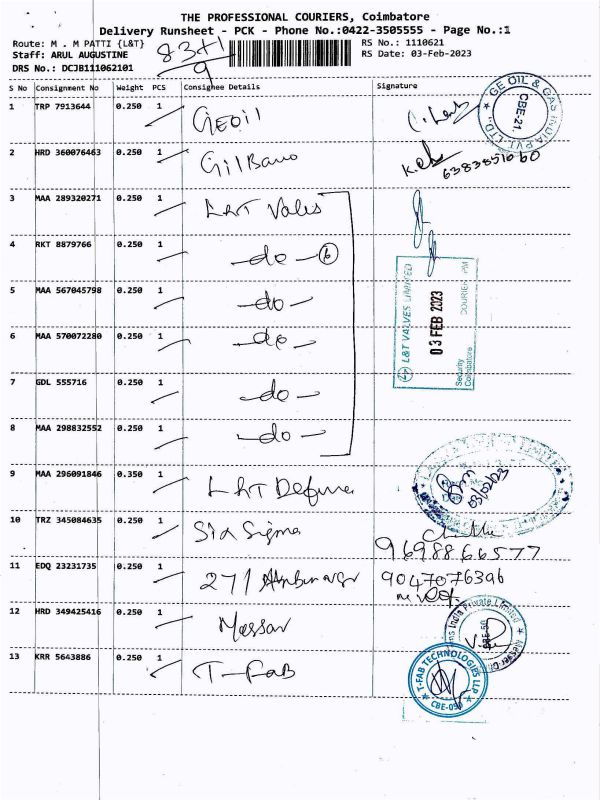 THE PROFESSIONAL COURIERS, Coimbatore
Delivery Runsheet - PCK - Phone No.:0422-3505555 - Page No.:1
Route: M . M PATTI {L&T}
Staff: ARUL AUGUSTINE
DRS No.: DCJB111062101
83+1
9
RS No.: 1110621
RS Date: 03-Feb-2023
S No Consignment No Weight PCS Consignee Details Signature
1 TRP 7913644 0.250 1 GEOil
GE OIL & GAS INDIA PVT. LTD.
CBE-21.
2 HRD 360076463 0.250 1
6383851060
3 MAA 289320271 0.250 1 L&T Valves
4 RKT 8879766 0.250 1 -do- 6
L&T VALVES LIMITED
03 FEB 2023
COURIER PM
Security
Coimbatore
5 MAA 567045798 0.250 1 -do-
6 MAA 570072280 0.250 1 -do-
7 GDL 555716 0.250 1 -do-
8 MAA 298832552 0.250 1 -do-
9 MAA 296091846 0.350 1 L&T Defence
03/02/23
10 TRZ 345084635 0.250 1 Six Sigma
9698866577
11 EDQ 23231735 0.250 1 271
9047076396
12 HRD 349425416 0.250 1 Messar
India Private Limited
CBE-50
13 KRR 5643886 0.250 1 T-FAB
T-FAB TECHNOLOGIES LLP
CBE-050